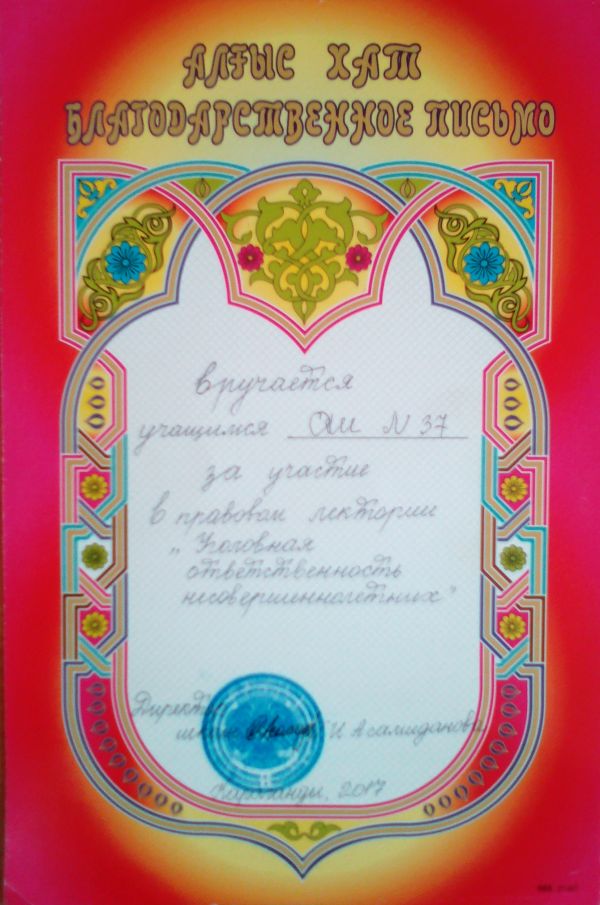 АЛҒЫС ХАТ
БЛАГОДАРСТВЕННОЕ ПИСЬМО
вручается
учащимся ОШ N 37
за участие
в правовом лектории
„Уголовная
ответственность
несовершеннолетних"
Директор
школы И Асамиданова
Караганды, 2017